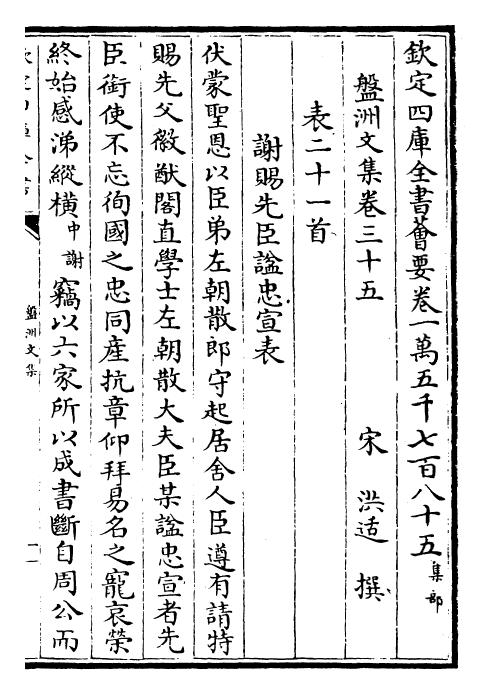 欽定四庫全書薈要卷一萬五千七百八十五集部
盤洲文集卷三十五　宋　洪适　撰
表二十一首
謝賜先臣諡忠宣表
伏蒙聖恩以臣弟左朝散郎守起居舍人臣遵有請特
賜先父徽猷閣直學士左朝散大夫臣某諡忠宣者先
臣銜使不忘徇國之忠同産抗章仰拜易名之寵哀榮
終始感涕縱横中謝竊以六家所以成書斷自周公而
盤洲文集
一